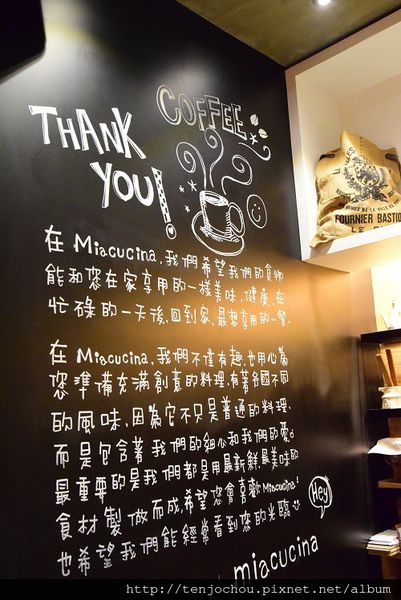 COFFEE
THANK
YOU!
在 Miacucina,我們希望我們的食物
能和您在家享用的一樣美味,健康.在
忙碌的一天後,回到家,最想享用的一餐.
在 Miacucina,我們不僅有趣,也用心為
您準備充滿創意的料理.有著各國不同
的風味.因為它不只是普通的料理.
而是包含著我們的細心和我們的愛。
最重要的是我們都是用最新鮮.最美味的
食材製做而成.希望您會喜歡 Miacucina!
也希望我們能經常看到您的光臨
Hey!
miacucina
FOURNIER BASTION
http://tenjochou.pixnet.net/album